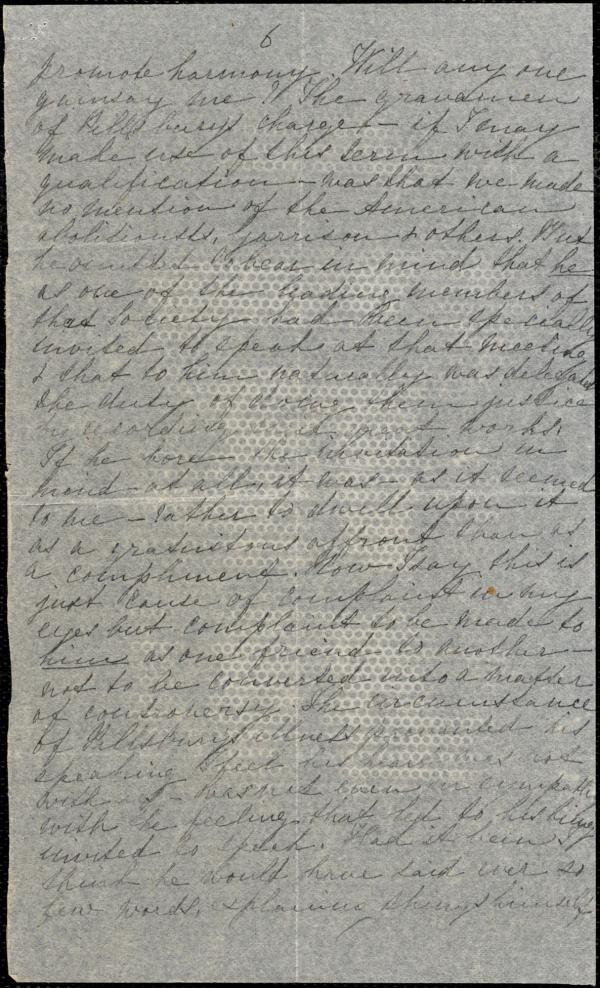 6
promote harmony. Will any one
gainsay me? The gravamen
of Pillsbury's charge - if I may
make use of this term with a
qualification - was that we made
no mention of the American
abolitionists, Garrison & others. But
he omitted to bear in mind that he
as one of the leading members of
that Society had been specially
invited to speak at that meeting
& that to him naturally was delegated
the duty of doing them justice
by recording great works.
If he bore the invitation in
mind at all, it was - as it seemed
to me - rather to dwell upon it
as a gratuitous affront than as
a compliment. Now I say this is
just cause of complaint in my
eyes but complaint to be made to
him as one friend to another -
not to be converted into a matter
of controversy. The circumstance
of Pillsbury's illness prevented his
speaking I feel his heart was not
with - was not even in sympathy
with the feeling that led to his being
invited to speak. Had it been I
think he would have said ever so
few words, explaining things himself